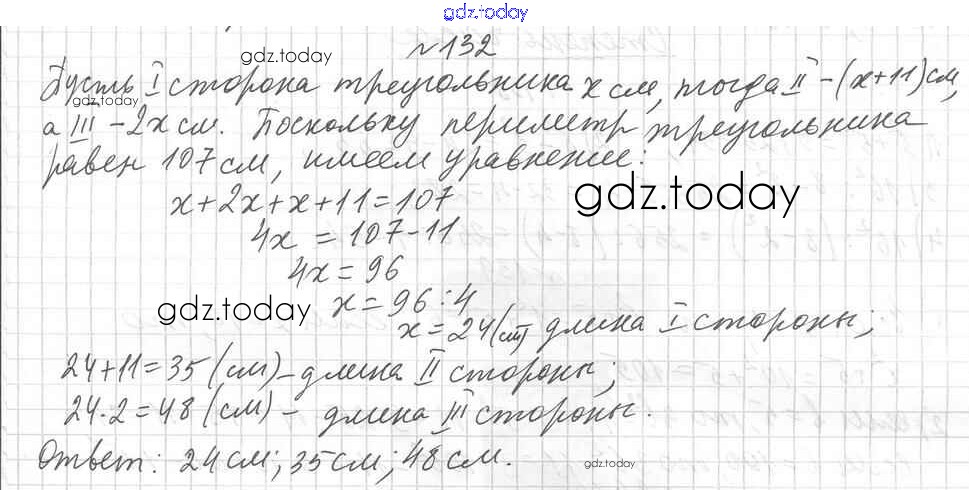 gdz.today
№132
gdz.today
Пусть I сторона треугольника x см, тогда II – (x+11) см,
gdz.today
а III – 2x см. Поскольку периметр треугольника
равен 107 см, имеем уравнение:
x+2x+x+11=107
gdz.today
4x = 107-11
4x = 96
gdz.today
x = 96:4
x = 24 (см) длина I стороны;
24+11=35 (см) – длина II стороны;
24·2=48 (см) – длина III стороны.
Ответ: 24 см; 35 см; 48 см.
gdz.today